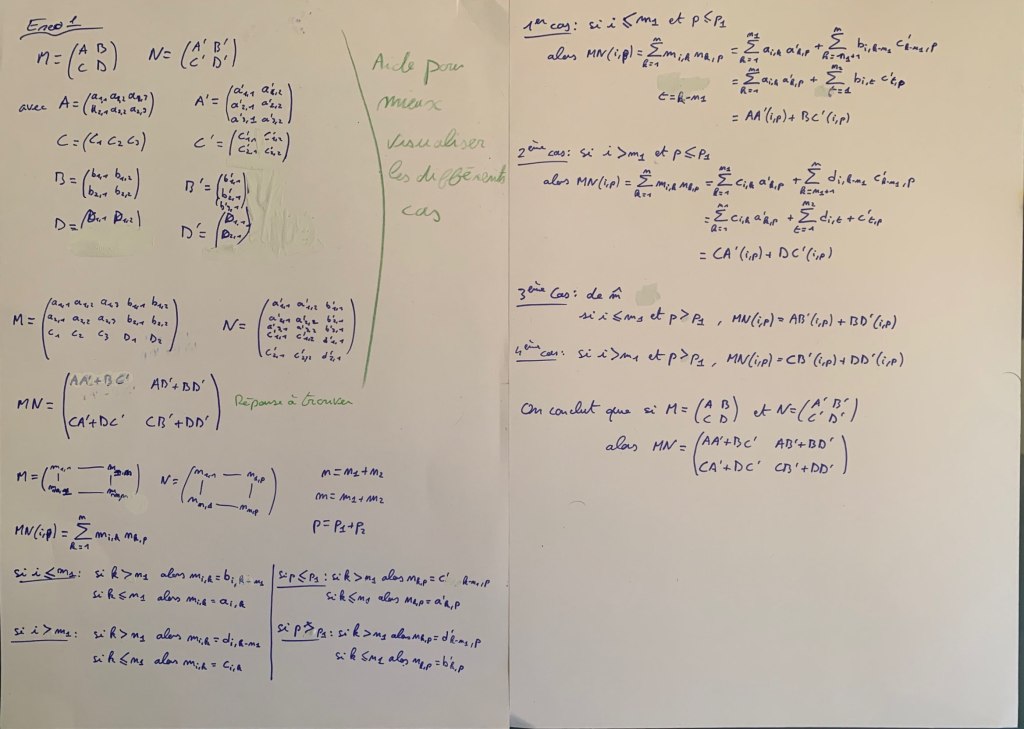 Exo 1
M = (A B
C D) N = (A' B'
C' D')
Aide pour
mieux
visualiser
les différents
cas
avec A = (a1,1 a1,2 a1,3
a2,1 a2,2 a2,3) A' = (a'1,1 a'1,2
a'2,1 a'2,2
a'3,1 a'3,2)
C = (C1 C2 C3) C' = (c'1,1 c'1,2
c'2,1 c'2,2)
B = (b1,1 b1,2
b2,1 b2,2) B' = (b'1,1
b'2,1
b'3,1)
D = (D1,1 D1,2) D' = (D1,1
D2,1)
M = (a1,1 a1,2 a1,3 b1,1 b1,2
a2,1 a2,2 a2,3 b2,1 b2,2
C1 C2 C3 D1 D2) N = (a'1,1 a'1,2 b'1,1
a'2,1 a'2,2 b'2,1
a'3,1 a'3,2 b'3,1
c'1,1 c'1,2 d'1,1
c'2,1 c'2,2 d'2,1)
MN = (AA'+BC' AB'+BD'
CA'+DC' CB'+DD') Réponse à trouver
M = (m1,1 — m1,m
| |
mn,1 — mn,m) N = (n1,1 — n1,p
| |
nm,1 — nm,p) n = n1+n2
m = m1+m2
p = P1+P2
MN(i,p) = Σ(k=1 à m) mi,k nk,p
si i ≤ n1 : si k > m1 alors mi,k = bi,k-m1
si k ≤ m1 alors mi,k = ai,k
si i > m1 : si k > m1 alors mi,k = di,k-m1
si k ≤ m1 alors mi,k = ci,k
si p ≤ p1 : si k > m1 alors nk,p = c' k-m1,p
si k ≤ m1 alors nk,p = a'k,p
si p > p1 : si k > m1 alors nk,p = d'k-m1,p
si k ≤ m1 alors nk,p = b'k,p
1er cas : si i ≤ m1 et p ≤ p1
alors MN(i,p) = Σ(k=1 à m) mi,k nk,p = Σ(k=1 à m1) ai,k a'k,p + Σ(k=m1+1 à m) bi,k-m1 c'k-m1,p
t = k-m1 = Σ(k=1 à m1) ai,k a'k,p + Σ(t=1 à m2) bi,t c't,p
= AA'(i,p) + BC'(i,p)
2ème cas : si i > m1 et p ≤ P1
alors MN(i,p) = Σ(k=1 à m) mi,k nk,p = Σ(k=1 à m1) ci,k a'k,p + Σ(k=m1+1 à m) di,k-m1 c'k-m1,p
= Σ(k=1 à m1) ci,k a'k,p + Σ(t=1 à m2) di,t + c't,p
= CA'(i,p) + DC'(i,p)
3ème Cas : de m̂
si i ≤ m1 et p > P1 , MN(i,p) = AB'(i,p) + BD'(i,p)
4ème cas : si i > m1 et p > P1 , MN(i,p) = CB'(i,p) + DD'(i,p)
On conclut que si M = (A B
C D) et N = (A' B'
C' D')
alors MN = (AA'+BC' AB'+BD'
CA'+DC' CB'+DD')